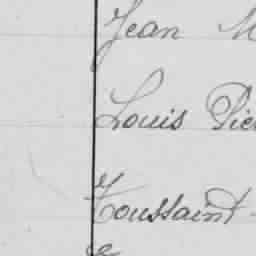 Jean M
Louis Pie
Toussaint